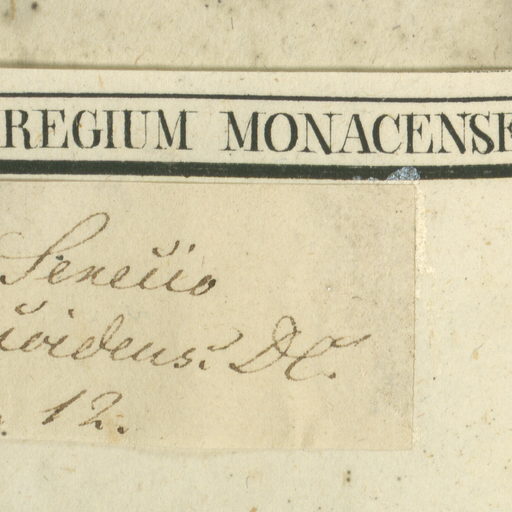 REGIUM MONACENSE
Senecio
DC.
12.